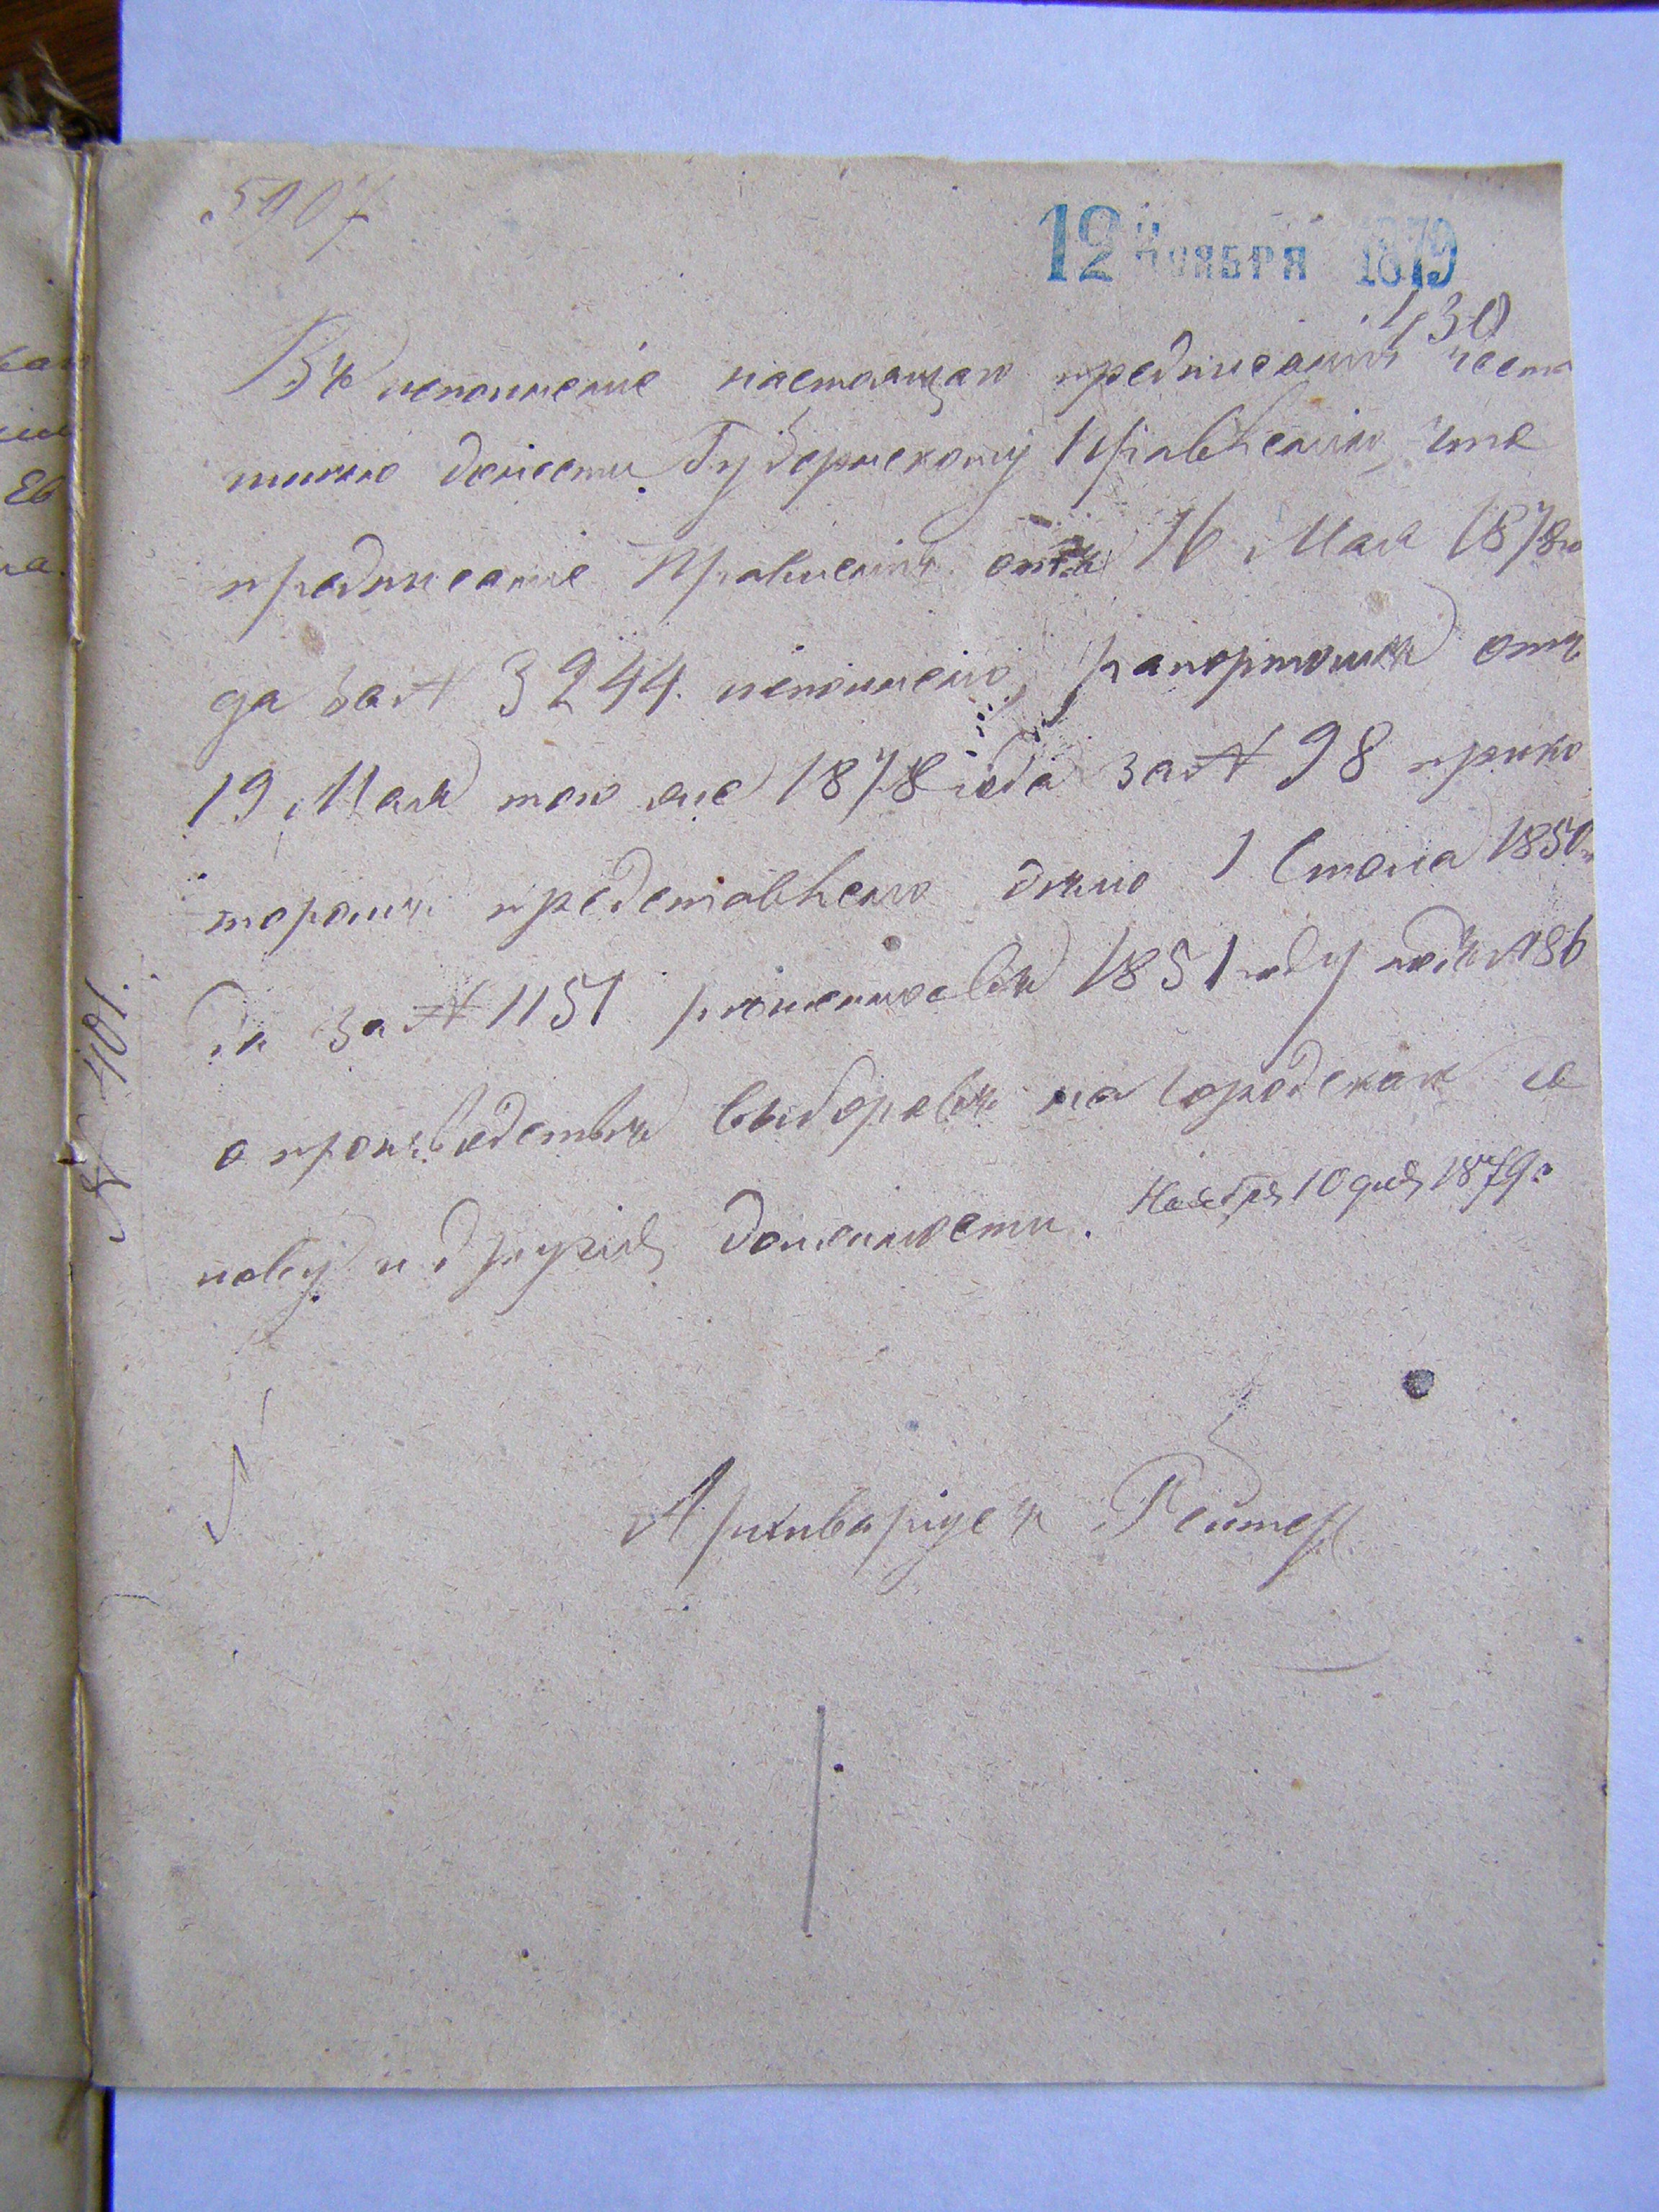 5907
12 Ноября 1879
430
Въ исполненіе настоящаго предписанія чест
имѣю донести Губернскому Правленію, что
предписаніе Правленія отъ 16 Мая 1878 го
да за № 3244. исполнено, рапортомъ отъ
19 Мая того же 1878 года за № 98 при ко
торомъ представлено дѣло 1 Стола 1850 г
да за № 1151 рѣшенное въ 1851 году подъ № 86
о производствѣ выборовъ на Городскаго
лову и другія должности. Ноября 10 дня 1879 г.
№ 401.
Архиваріусъ